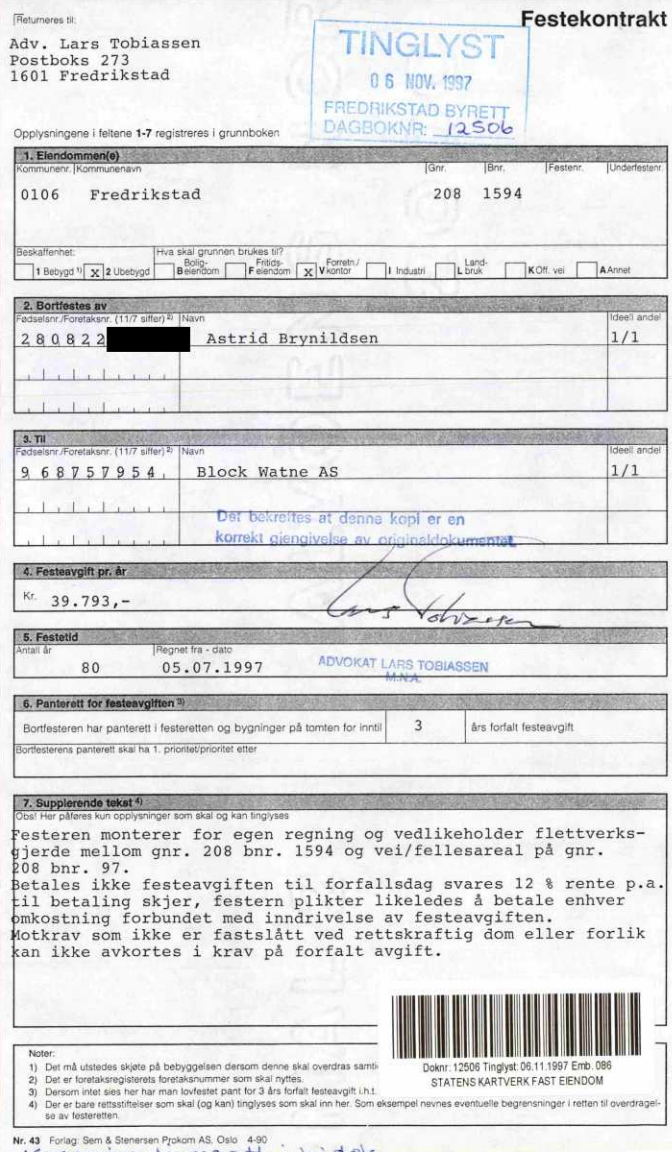 Returneres til:
Festekontrakt
Adv. Lars Tobiassen
Postboks 273
1601 Fredrikstad
TINGLYST
06 NOV. 1997
FREDRIKSTAD BYRETT
DAGBOKNR: 12506
Opplysningene i feltene 1-7 registreres i grunnboken
1. Eiendommen(e)
Kommunenr. Kommunenavn Gnr. Bnr. Festenr. Underfestenr.
0106 Fredrikstad 208 1594
Beskaffenhet: Hva skal grunnen brukes til?
1 Bebygd 1) X 2 Ubebygd Bolig- Beiendom Fritids- Feiendom X Forretn./ V kontor I Industri Land- L bruk K Off. vei A Annet
2. Bortfestes av
Fødselsnr./Foretaksnr. (11/7 siffer) 2) Navn Ideell andel
280822 Astrid Brynildsen 1/1
3. Til
Fødselsnr./Foretaksnr. (11/7 siffer) 2) Navn Ideell andel
968757954 Block Watne AS 1/1
Det bekreftes at denne kopi er en
korrekt gjengivelse av originaldokumentet
4. Festeavgift pr. år
Kr. 39.793,-
Lars Tobiassen
5. Festetid
Antall år Regnet fra - dato
80 05.07.1997
ADVOKAT LARS TOBIASSEN
M.N.A.
6. Panterett for festeavgiften 3)
Bortfesteren har panterett i festeretten og bygninger på tomten for inntil 3 års forfalt festeavgift
Bortfesterens panterett skal ha 1. prioritet/prioritet etter
7. Supplerende tekst 4)
Obs! Her påføres kun opplysninger som skal og kan tinglyses
Festeren monterer for egen regning og vedlikeholder flettverks-
gjerde mellom gnr. 208 bnr. 1594 og vei/fellesareal på gnr.
208 bnr. 97.
Betales ikke festeavgiften til forfallsdag svares 12 % rente p.a.
til betaling skjer, festern plikter likeledes å betale enhver
omkostning forbundet med inndrivelse av festeavgiften.
Motkrav som ikke er fastslått ved rettskraftig dom eller forlik
kan ikke avkortes i krav på forfalt avgift.
Doknr: 12506 Tinglyst: 06.11.1997 Emb. 086
STATENS KARTVERK FAST EIENDOM
Noter:
1) Det må utstedes skjøte på bebyggelsen dersom denne skal overdras
2) Det er foretaksregisterets foretaksnummer som skal nyttes.
3) Dersom intet sies her har man lovfestet pant for 3 års forfalt festeavgift i.h.t.
4) Det er bare rettsstiftelser som skal (og kan) tinglyses som skal inn her. Som eksempel nevnes eventuelle begrensninger i retten til overdragel-
se av festeretten.
Nr. 43 Forlag: Sem & Stenersen Prokom AS, Oslo 4-90